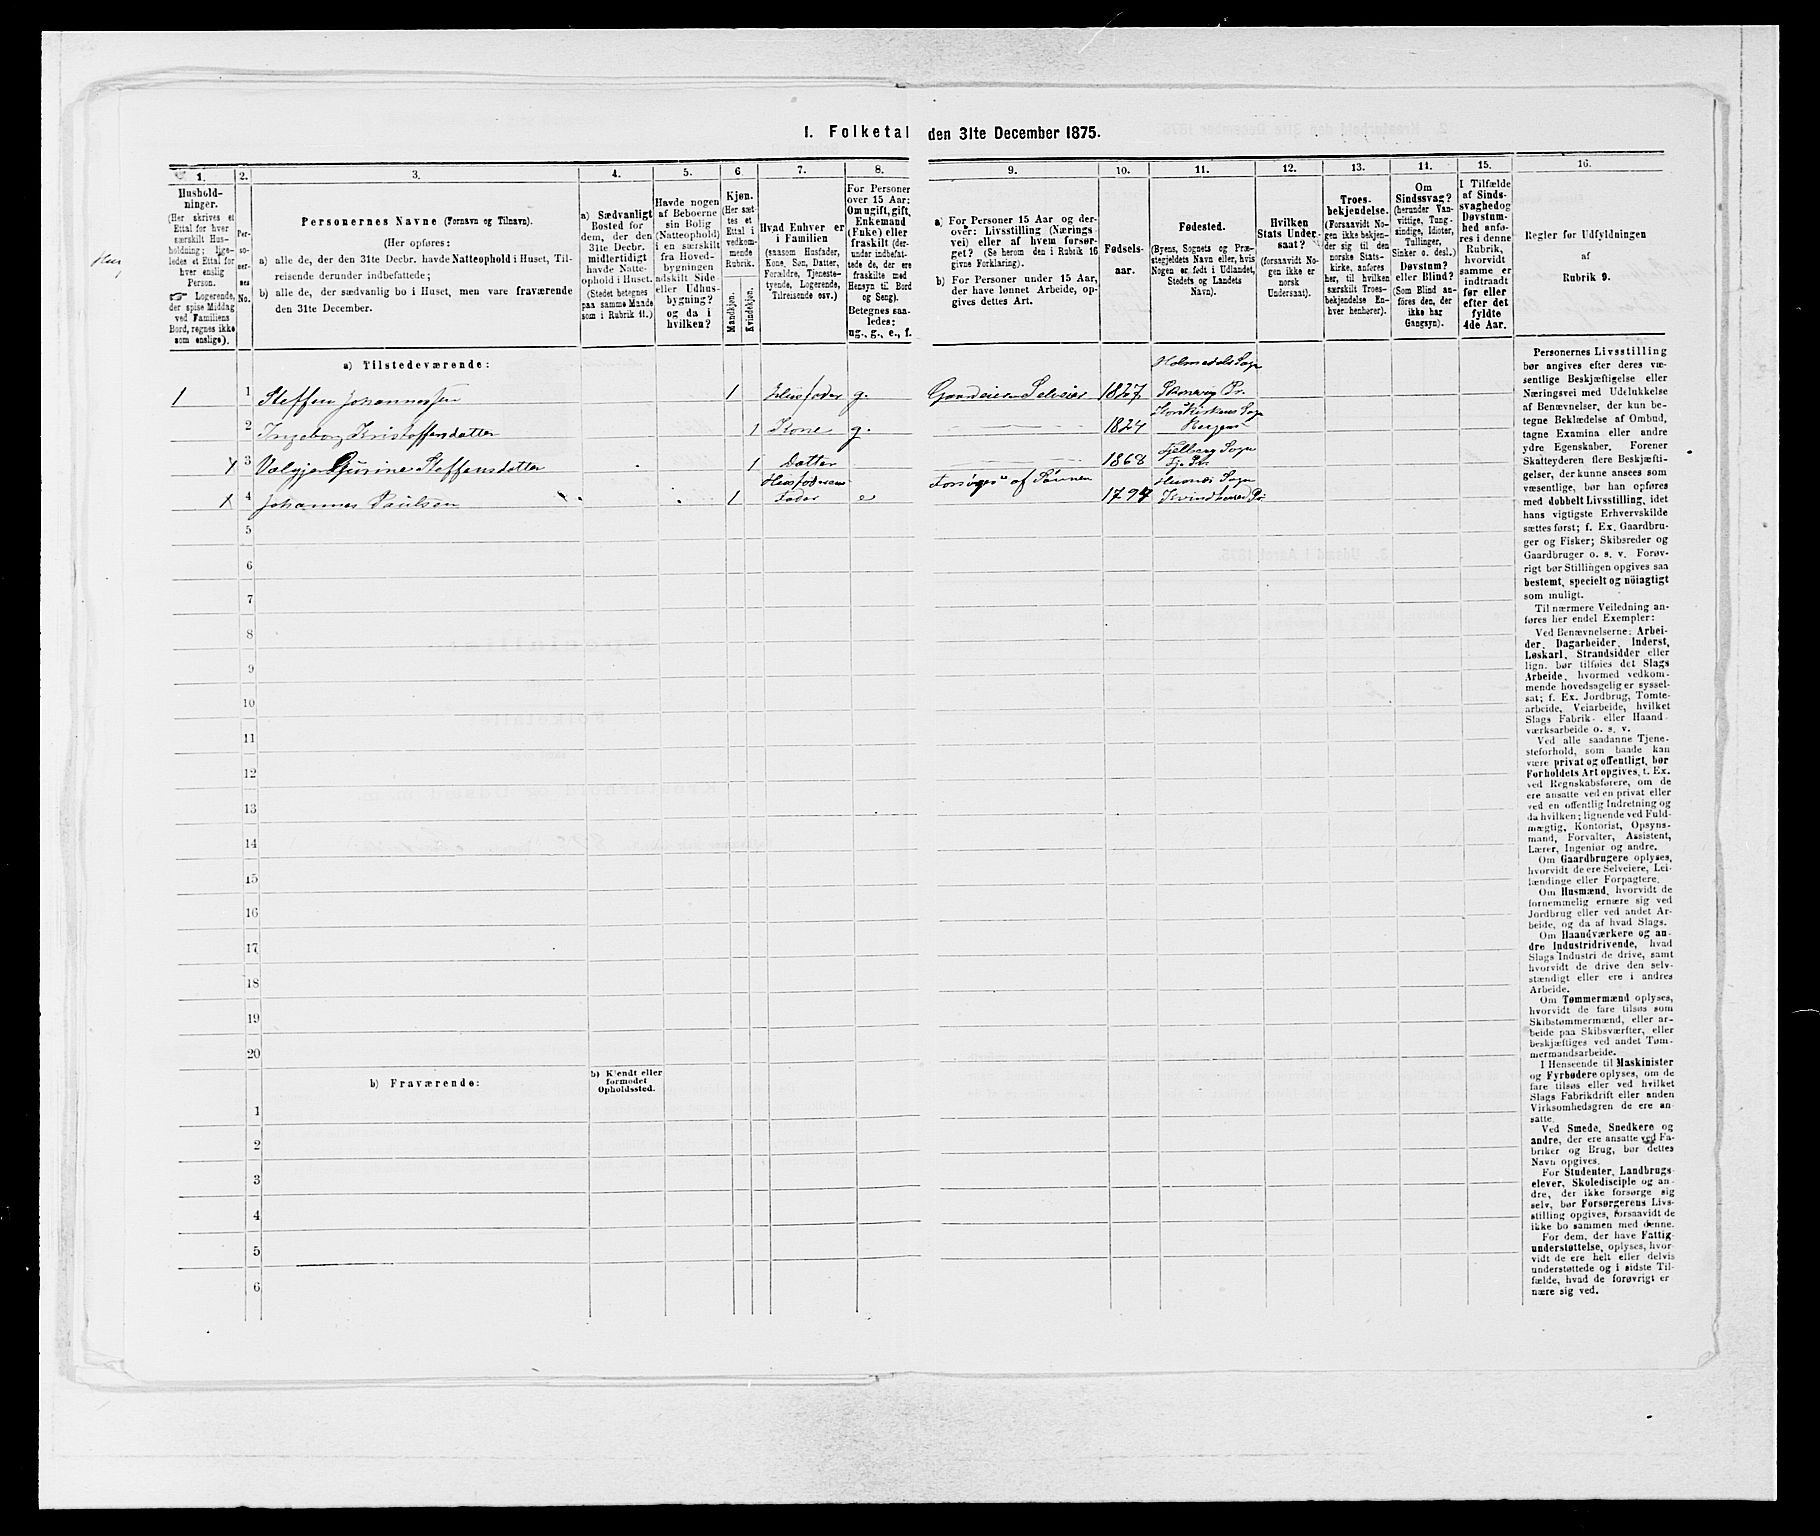 1. Folketal den 31te December 1875.
1. 2. 3. 4. 5. 6. 7. 8. 9. 10. 11. 12. 13. 14. 15. 16.
Hushold-
ninger.
(Her skrives et
Ettal for hver
særskilt Hus-
holdning; lige-
ledes et Ettal for
hver enslig
Person.
☞ Logerende,
der spise Middag
ved Familiens
Bord, regnes ikke
som enslige).
Per-
so-
ner-
nes
No.
Personernes Navne (Fornavn og Tilnavn).
(Her opføres:
a) alle de, der den 31te Decbr. havde Natteophold i Huset, Til-
reisende derunder indbefattede;
b) alle de, der sædvanlig bo i Huset, men vare fraværende
den 31te December.
a) Sædvanligt
Bosted for
dem, der den
31te Decbr.
midlertidigt
havde Natte-
ophold i Huset.
(Stedet betegnes
paa samme Maade
som i Rubrik 11.)
Havde nogen
af Beboerne
sin Bolig
(Natteophold)
i en særskilt
fra Hoved-
bygningen
adskilt Side-
eller Udhus-
bygning?
og da i
hvilken?
Kjøn.
(Her sæt-
tes et
Ettal i
vedkom-
mende
Rubrik.
Mandkjøn.
Kvindekjøn.
Hvad Enhver er
i Familien
(saasom Husfader,
Kone, Søn, Datter,
Forældre, Tjeneste-
tyende, Logerende,
Tilreisende osv.)
For Personer
over 15 Aar:
Om ugift, gift,
Enkemand
(Enke) eller
fraskilt (der-
under indbefat-
tede de, der ere
fraskilte med
Hensyn til Bord
og Seng).
Betegnes saa-
ledes:
ug., g., e., f.
a) For Personer 15 Aar og der-
over: Livsstilling (Nærings-
vei) eller af hvem forsør-
get? (Se herom den i Rubrik 16
givne Forklaring).
b) For Personer under 15 Aar,
der have lønnet Arbeide, op-
gives dettes Art.
Fødsels-
aar.
Fødested.
(Byens, Sognets og Præ-
stegjeldets Navn eller, hvis
Nogen er født i Udlandet,
Stedets og Landets
Navn).
Hvilken
Stats Under-
saat?
(forsaavidt No-
gen ikke er
norsk
Undersaat).
Troes-
bekjendelse.
(Forsaavidt No-
gen ikke bekjen-
der sig til den
norske Stats-
kirke, anføres
her, til hvilken
særskilt Troes-
bekjendelse En-
hver henhører).
Om
Sindssvag?
(herunder Van-
vittige, Tung-
sindige, Idioter,
Tullinger,
Sinker o. desl.)
Døvstum?
eller Blind?
(Som Blind an-
føres den, der
ikke har
Gangsyn).
I Tilfælde
af Sinds-
svaghed og
Døvstum-
hed anfø-
res i denne
Rubrik,
hvorvidt
samme er
indtraadt
før eller
efter det
fyldte
4de Aar.
Regler for Udfyldningen
af
Rubrik 9.
a) Tilstedeværende:
Holmedals Sogn
1 1 Steffen Johannessen 1 Husfader g. Gaardeier Selveier 1827 Skonevig Pr.
Korskirkens Sogn
2 Ingeborg Kristoffersdatter 1 Kone g. 1824 Bergen
Fjelberg Sogn
3 Valgjer Gurine Steffensdatter 1 Datter 1868 Fj. Pr.
Husfaderens Husnes Sogn
4 Johannes Paulsen 1 Fader e Forsørges af Sønnen 1794 Kvindherred Pr
5
6
7
8
9
10
11
12
13
14
15
16
17
18
19
20
b) Fraværende:
b) Kjendt eller
formodet
Opholdssted.
1
2
3
4
5
6
Personernes Livsstilling
bør angives efter deres væ-
sentlige Beskjæftigelse eller
Næringsvei med Udelukkelse
af Benævnelser, der kun be-
tegne Beklædelse af Ombud,
tagne Examina eller andre
ydre Egenskaber. Forener
Skatteyderen flere Beskjæfti-
gelser, der kunne ansees som
væsentlige, bør han opføres
med dobbelt Livsstilling, idet
hans vigtigste Erhvervskilde
sættes først; f. Ex. Gaardbru-
ger og Fisker; Skibsreder og
Gaardbruger o. s. v. Forøv-
rigt bør Stillingen opgives saa
bestemt, specielt og nöiagtigt
som muligt.
Til nærmere Veiledning an-
føres her endel Exempler:
Ved Benævnelserne: Arbei-
der, Dagarbeider, Inderst,
Løskarl, Strandsidder eller
lign. bør tilføies det Slags
Arbeide, hvormed vedkom-
mende hovedsagelig er syssel-
sat; f. Ex. Jordbrug, Tomte-
arbeide, Veiarbeide, hvilket
Slags Fabrik- eller Haand-
værksarbeide o. s. v.
Ved alle saadanne Tjene-
steforhold, som baade kan
være privat og offentligt, bør
Forholdets Art opgives, t. Ex.
ved Regnskabsførere, om de
ere ansatte ved en privat eller
ved en offentlig Indretning og
da hvilken; lignende ved Fuld-
mægtig, Kontorist, Opsyns-
mand, Forvalter, Assistent,
Lærer, Ingeniør og andre.
Om Gaardbrugere oplyses,
hvorvidt de ere Selveiere, Lei-
lændinge eller Forpagtere.
Om Husmænd, hvorvidt de
fornemmelig ernære sig ved
Jordbrug eller ved andet Ar-
beide, og da af hvad Slags.
Om Haandværkere og an-
dre Industridrivende, hvad
Slags Industri de drive, samt
hvorvidt de drive den selv-
stændigt eller ere i andres
Arbeide.
Om Tømmermænd oplyses,
hvorvidt de fare tilsøs som
Skibstømmermænd, eller ar-
beide paa Skibsværfter, eller
beskjæftiges ved andet Tøm-
mermandsarbeide.
I Henseende til Maskinister
og Fyrbødere oplyses, om de
fare tilsøs eller ved hvilket
Slags Fabrikdrift eller anden
Virksomhedsgren de ere an-
satte.
Ved Smede, Snedkere og
andre, der ere ansatte ved Fa-
briker og Brug, bør dettes
Navn opgives.
For Studenter, Landbrugs-
elever, Skoledisciple og an-
dre, der ikke forsørge sig
selv, bør Forsørgerens Livs-
stilling opgives, forsaavidt de
ikke bo sammen med denne.
For dem, der have Fattig-
understøttelse, oplyses, hvor-
vidt de ere helt eller delvis
understøttede og i sidste Til-
fælde, hvad de forøvrigt er-
nære sig ved.